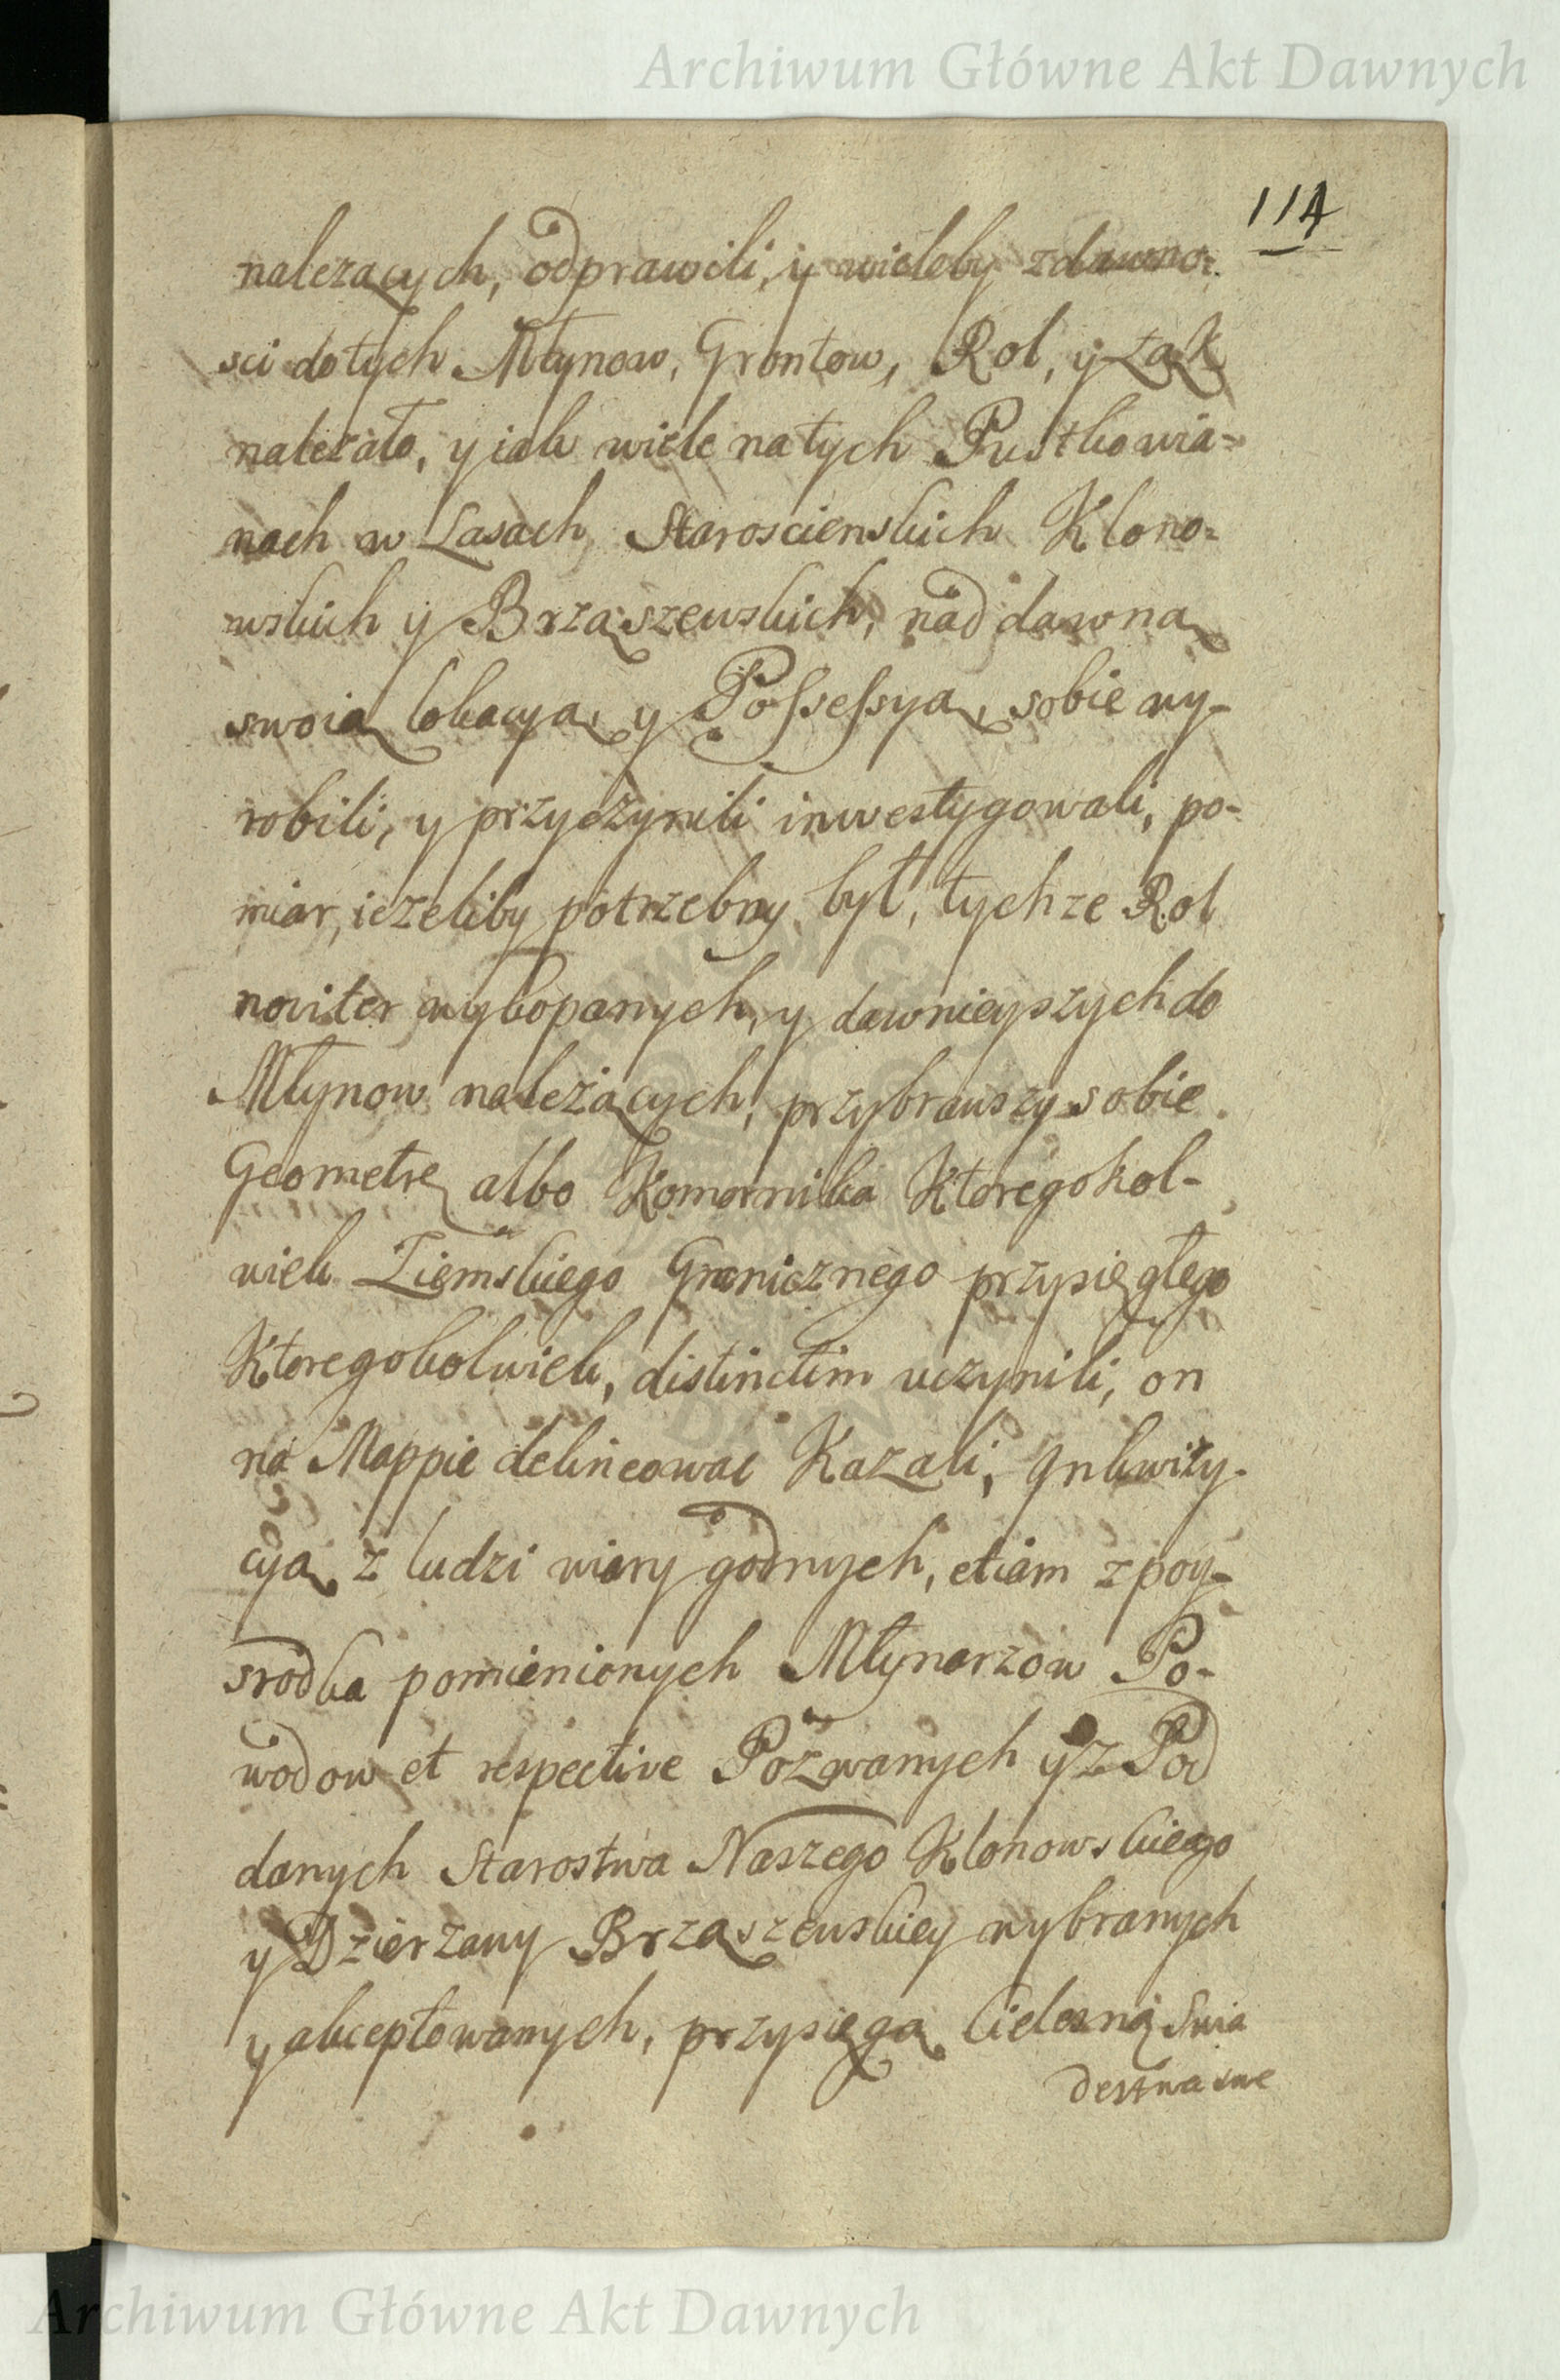 Archiwum Główne Akt Dawnych
114
należących, odprawili, y wieleby zdawno-
sci do tych Młynow, Grontow, Rol, y Łąk
należało, y iak wiele na tych Pustkowia-
nach w Lasach Starościenskich Klono-
wskich y Brząszewskich, nad dawną
swoią lokacyą, y Possessyą, sobie wy-
robili, y przyczynili inwestygowali, po-
miar, ieżeliby potrzebny był, tychże Rol
noviter wykopanych, y dawnieyszych do
Młynow należących, przybrawszy sobie
Geometrę albo Komornika Ktoregokol-
wiek Ziemskiego Granicznego przysięgłego
Ktoregokolwiek, distinctim uczynili, on
na Mappie delineować Kazali, Inkwizy-
cyą z ludzi wiary godnych, etiam z poy-
srodka pomienionych Młynarzow Po-
wodow et respective Pozwanych y z Pod
danych Starostwa Naszego Klonowskiego
y Dzierzawy Brząszewskiey wybranych
y akceptowanych, przysięgą Cielesną Swia
dectwa swe
Archiwum Główne Akt Dawnych